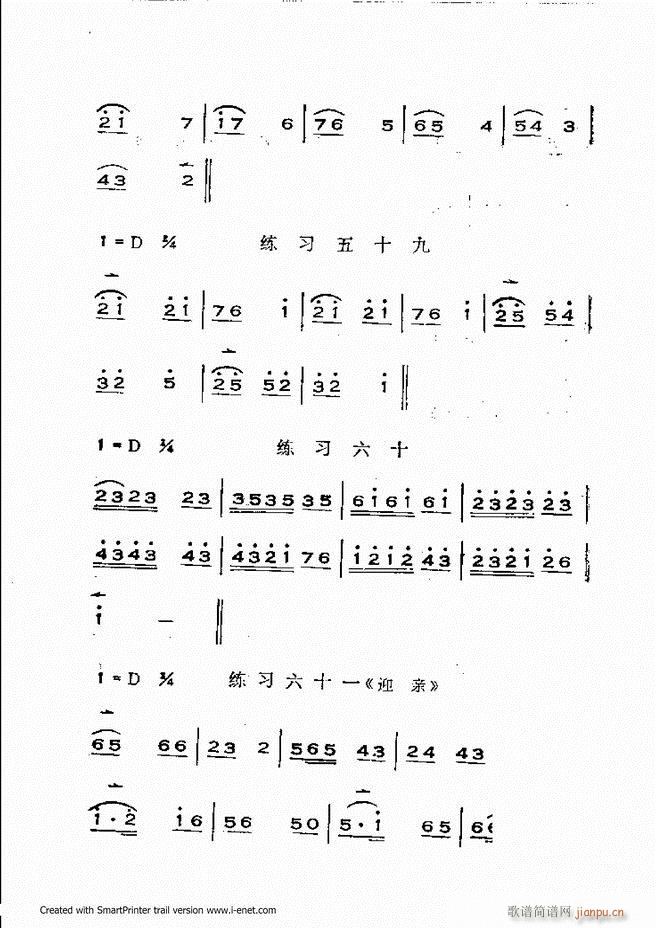 2̇1̇ 7 | 1̇7 6 | 76 5 | 65 4 | 54 3 |
43 2 ‖
1=D 2/4 练习五十九
2̇1̇ 2̇1̇ | 76 1̇ | 2̇1̇ 2̇1̇ | 76 1̇ | 2̇5̇ 5̇4̇ |
3̇2̇ 5̇ | 2̇5̇ 5̇2̇ | 3̇2̇ 1̇ ‖
1=D 2/4 练习六十
2323 23 | 3535 35 | 61̇61̇ 61̇ | 2̇3̇2̇3̇ 2̇3̇ |
4̇3̇4̇3̇ 4̇3̇ | 4̇3̇2̇1̇ 76 | 1̇2̇1̇2̇ 4̇3̇ | 2̇3̇2̇1̇ 2̇6 |
1̇ — ‖
1=D 2/4 练习六十一《迎亲》
65 66 | 23 2 | 565 43 | 24 43 |
1̇·2̇ 1̇6 | 56 50 | 5·1̇ 65 | 6
Created with SmartPrinter trail version www.i-enet.com
歌谱简谱网 jianpu.cn